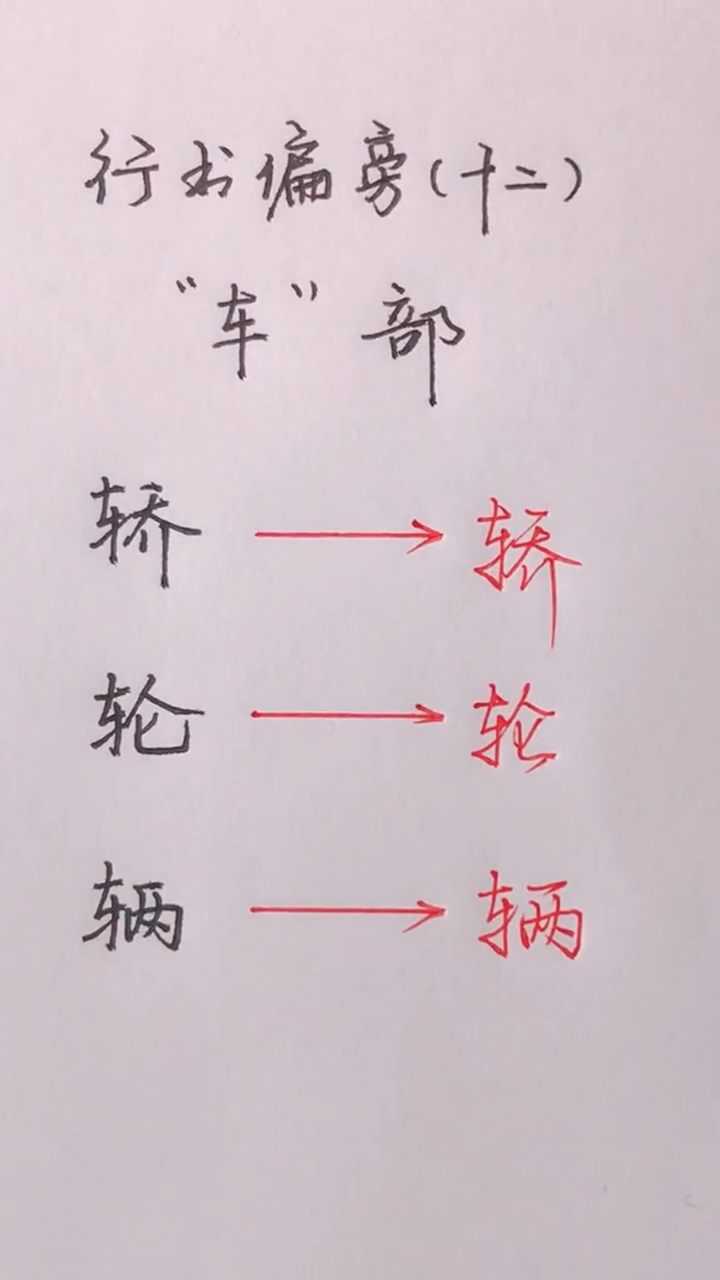 行书偏旁(十二)
“车”部
轿 → 轿
轮 → 轮
辆 → 辆